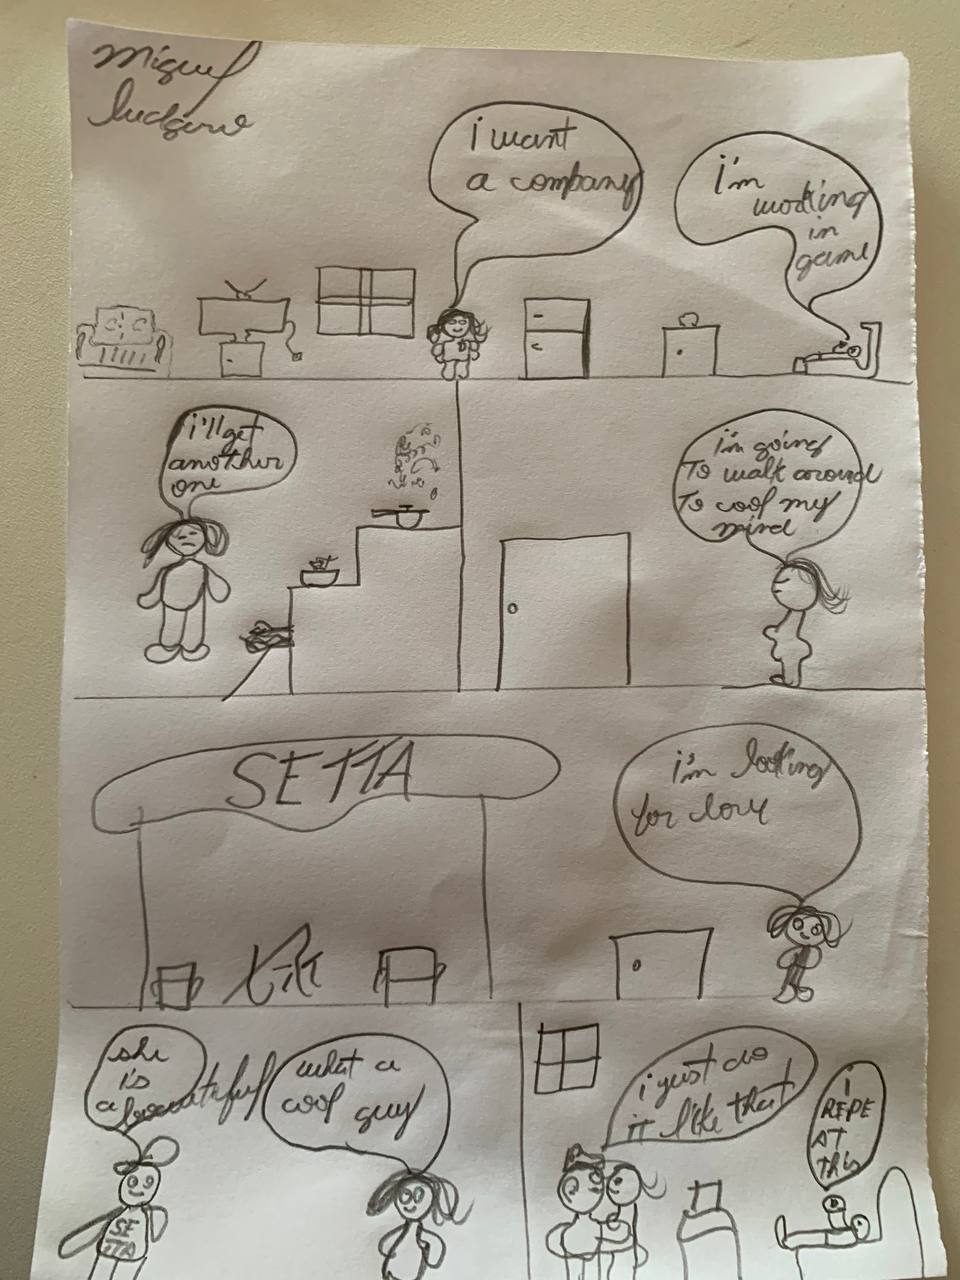 miguel
i want
a company
i'm
working
in
game
i'll get
another
one
i'm going
To walk around
To cool my
mind
SETTA
i'm looking
for love
she
is
a beautiful
what a
cool guy
i just do
it like that
i
REPE
AT
this
SE
TTA